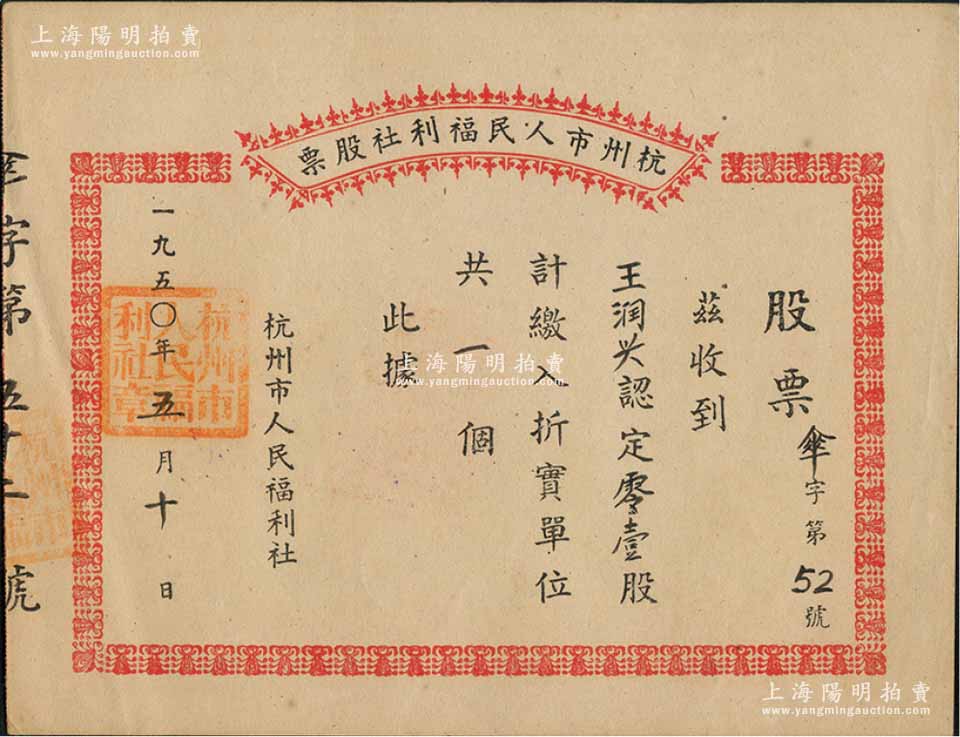 上海陽明拍賣
www.yangmingauction.com
杭州市人民福利社股票
股票 傘字第52號
茲收到
王润兴認定零壹股
計繳入折實單位
共一個
此據
杭州市人民福利社
一九五〇年五月十日
杭州市
人民福
利社章
字第五十二號
上海陽明拍賣
www.yangmingauction.com
上海陽明拍賣
www.yangmingauction.com